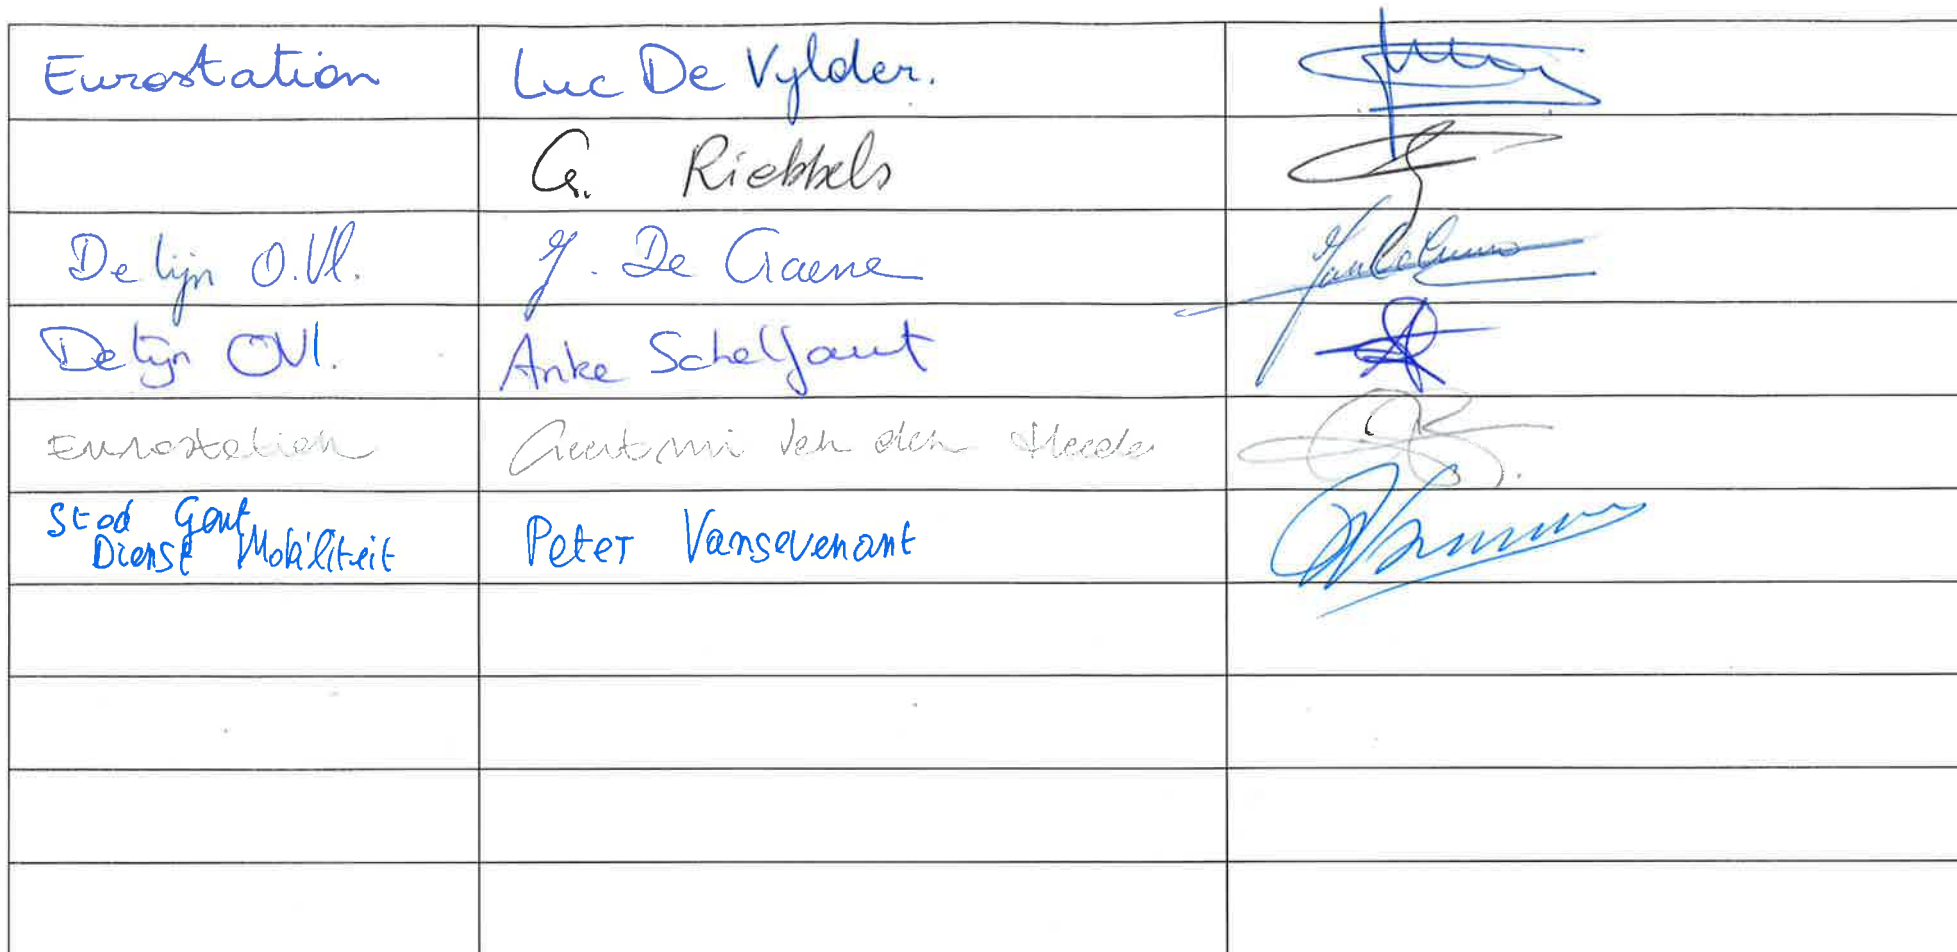 Eurostation Luc De Vylder.
G. Riebbels
De Lijn O.Vl. J. De Graene
De Lijn OVl. Anke Schelfaut
Eurostation van den Heede
Stad Gent Dienst Mobiliteit Peter Vansevenant